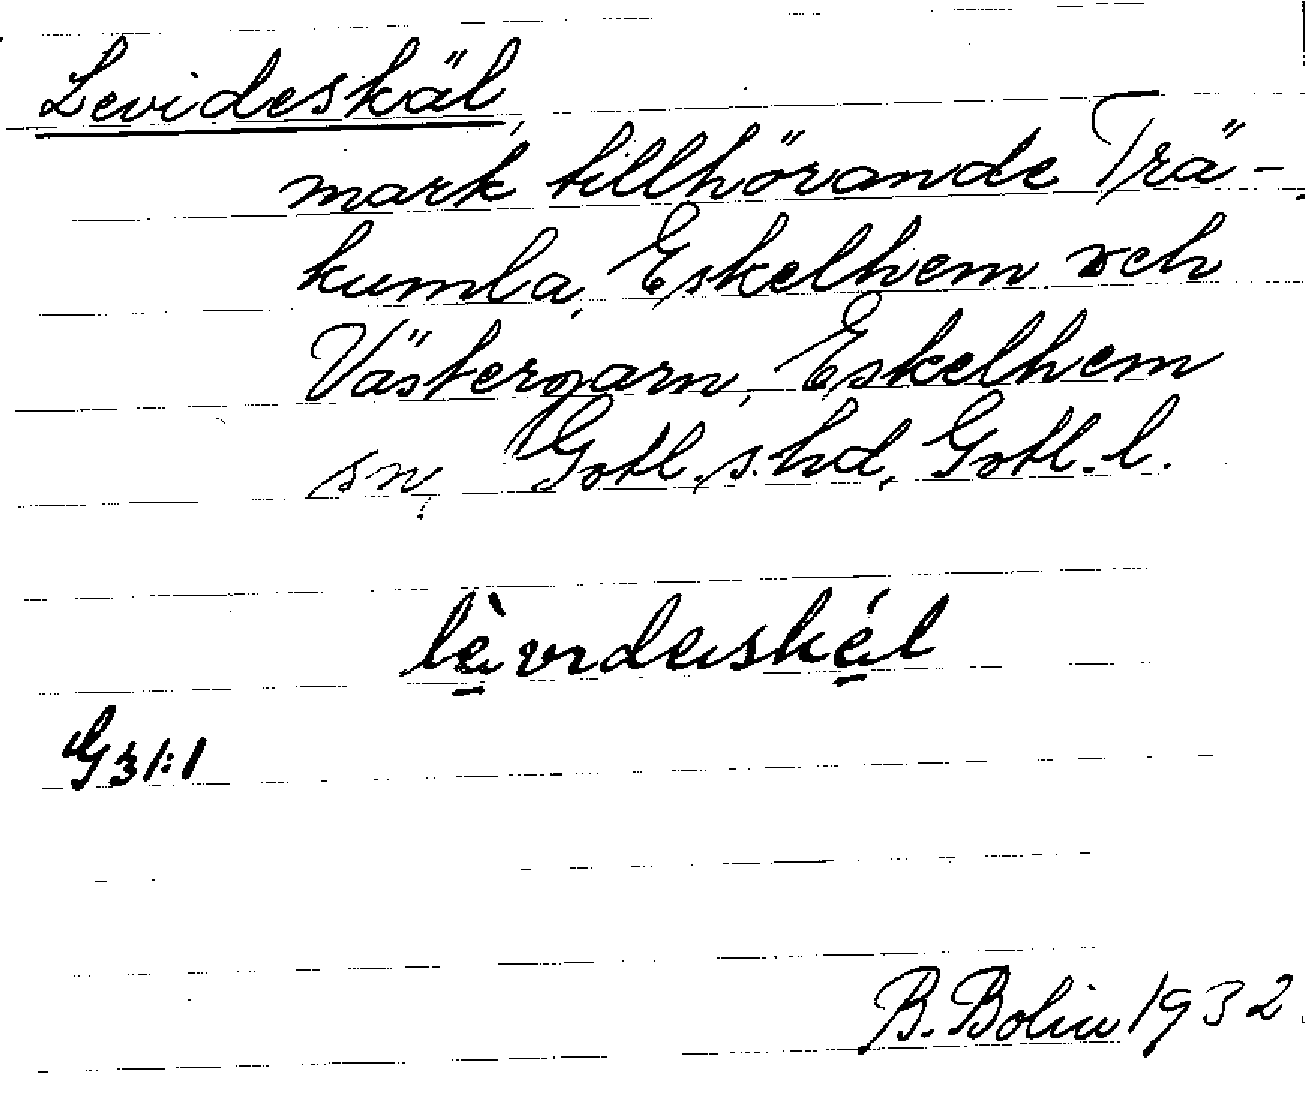 Levideskäl,
mark tillhörande Trä-
kumla, Eskelhem och
Västergarn, Eskelhem
sn, Gotl. s. hd, Gotl. l.
lèvɪdeskél
G 31:1
B. Bolin 1932